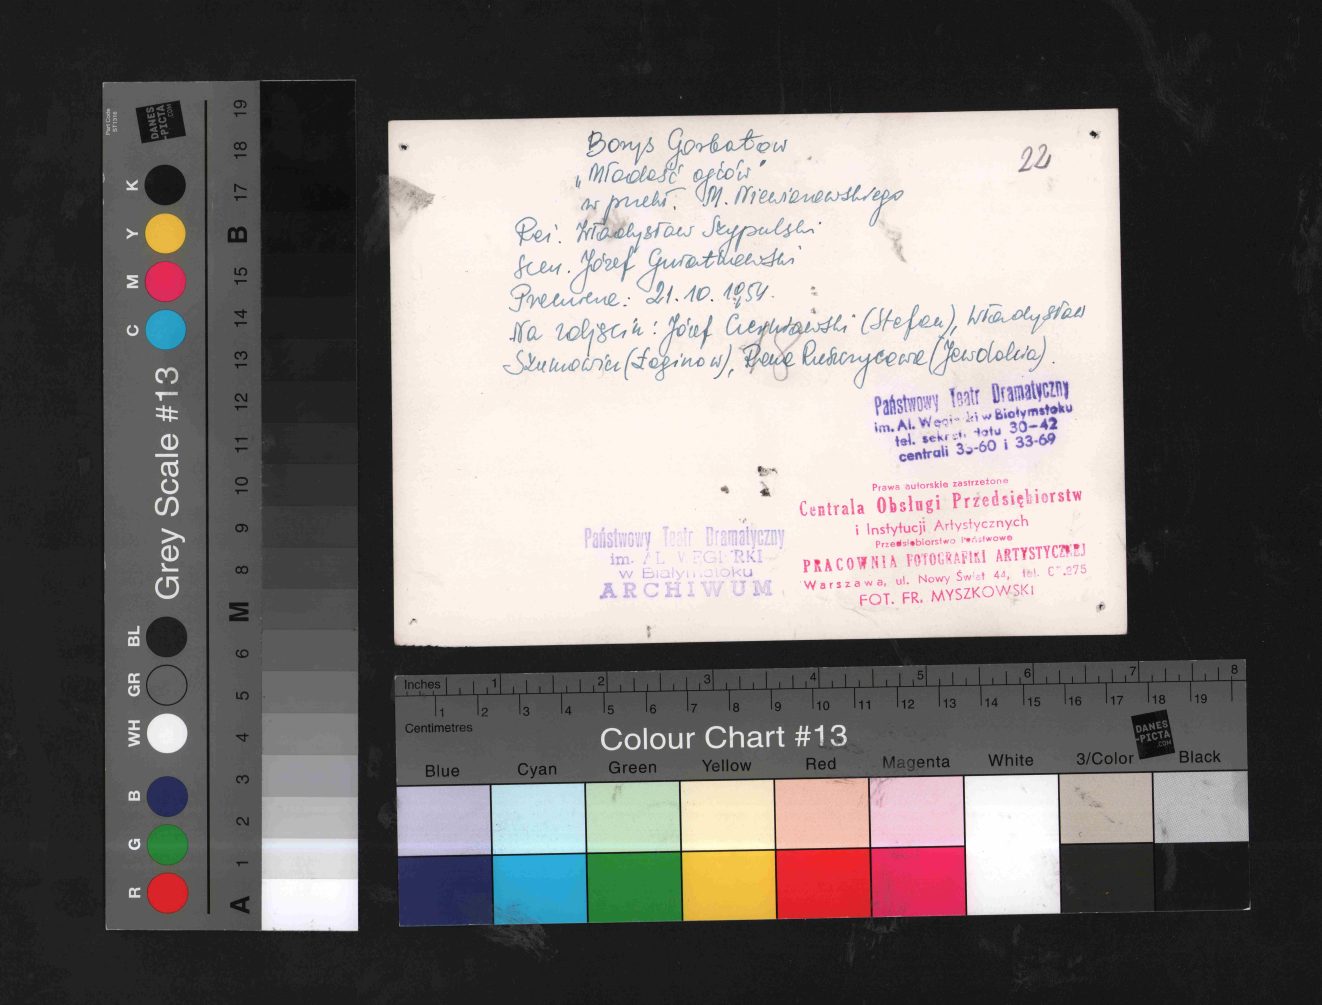 Part Code
ST1316
DANES
-PICTA
.COM
Grey Scale #13
R G B WH GR BL C M Y K
A 1 2 3 4 5 6 M 8 9 10 11 12 13 14 15 B 17 18 19
22
Borys Gorbatow
„Młodość ojców"
w przekł. M.
Reż. Władysław Szypulski
Scen. Józef
Premiera: 21.10.1954.
Na zdjęciu: Józef (Stefan), Władysław
Szumowicz (Łoginow), (Jewdokia).
18
Państwowy Teatr Dramatyczny
im. Al. w Białymstoku
tel. 30-42
centrali 35-60 i 33-69
Prawa autorskie zastrzeżone
Centrala Obsługi Przedsiębiorstw
i Instytucji Artystycznych
Przedsiębiorstwo Państwowe
PRACOWNIA FOTOGRAFIKI ARTYSTYCZNEJ
Warszawa, ul. Nowy Świat 44, tel.
FOT. FR. MYSZKOWSKI
Państwowy Teatr Dramatyczny
im. AL. WĘGIERKI
w Białymstoku
ARCHIWUM
Inches 1 2 3 4 5 6 7 8
1 2 3 4 5 6 7 8 9 10 11 12 13 14 15 16 17 18 19
Centimetres
Colour Chart #13
DANES
-PICTA
.COM
Blue Cyan Green Yellow Red Magenta White 3/Color Black